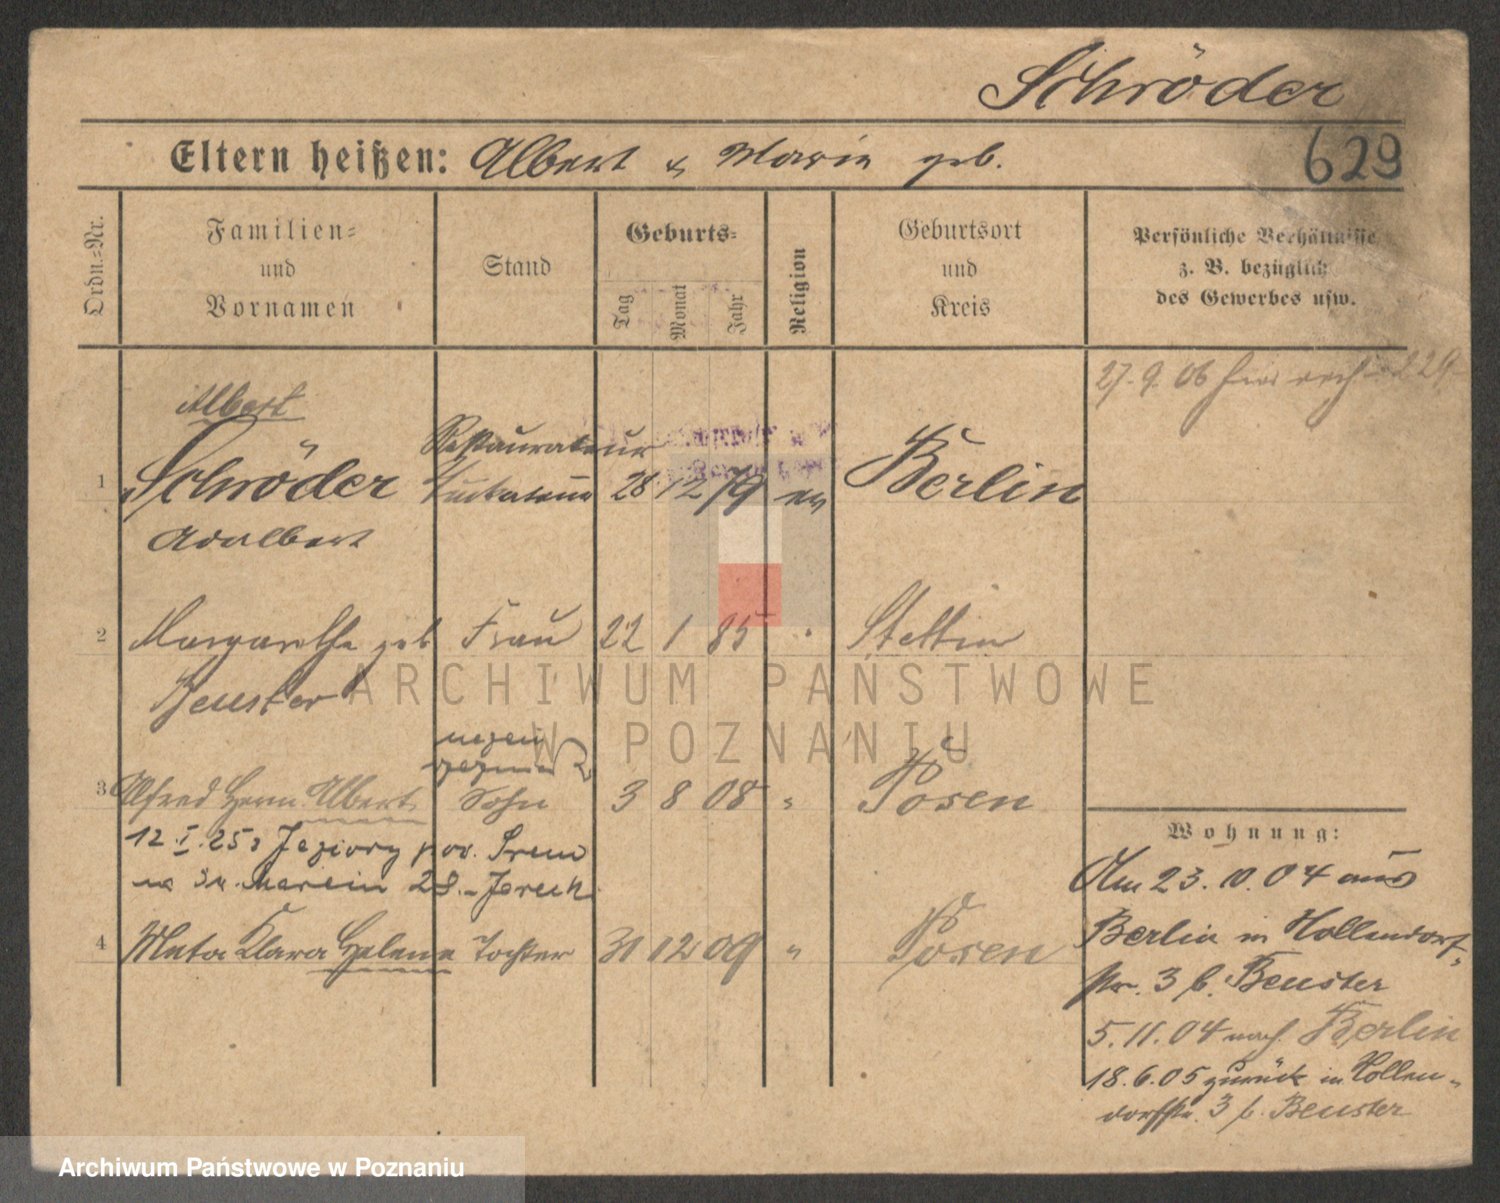 Schröder
Eltern heißen: Albert u Marie geb.
629
Ordn.-Nr.
Familien=
und
Vornamen
Stand
Geburts=
Tag
Monat
Jahr
Religion
Geburtsort
und
Kreis
Persönliche Verhältnisse
z. B. bezüglich
des Gewerbes usw.
27. 9. 06
Albert
1 Schröder Restaurateur 28 12 79 ev Berlin
Adalbert
2 Margarethe geb Frau 22 1 85 " Stettin
Beuster
3 Alfred Herm. Albert Sohn 3 8 08 " Posen
12.I.25 Jeziory pov. Srem
na Sw. Marcin 28.
4 Meta Klara Helene Tochter 31 12 09 " Posen
Wohnung:
Am 23.10.04 aus
Berlin in Hollendorf=
str. 3 b. Beuster
5.11.04 nach Berlin
18.6.05 zurück in Hollen=
dorfstr. 3 b. Beuster
ARCHIWUM PAŃSTWOWE
W POZNANIU
Archiwum Państwowe w Poznaniu